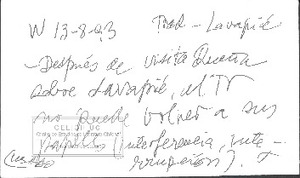 W 13-8-93 Trad - Lavapié
- Después de visita Quena
sobre Lavapié, el TV
no puede volver a sus
papeles (interferencia, inte-
rrupción).
CEL